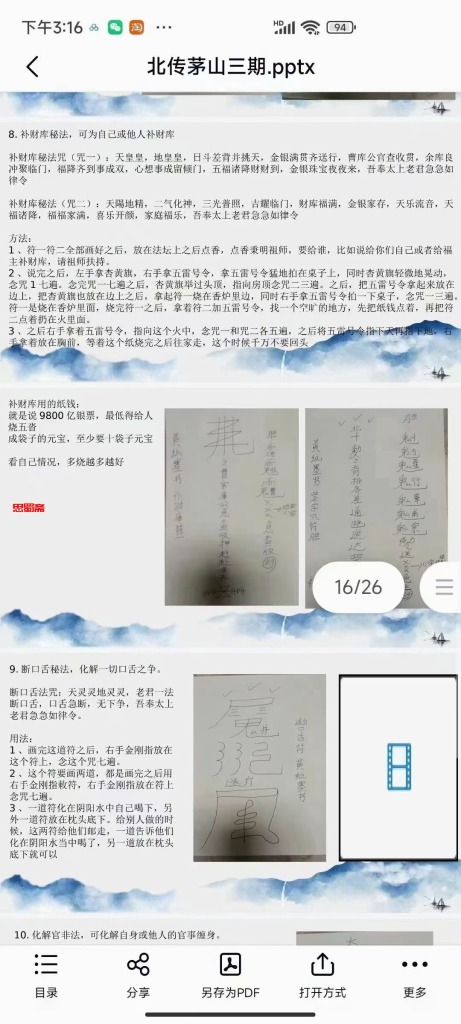 下午3:16
HD
94
北传茅山三期.pptx
8. 补财库秘法，可为自己或他人补财库
补财库秘法咒（咒一）：天皇皇，地皇皇，日斗差背并挑天，金银满贯齐送行，曹库公官查收贯，余库良
冲聚临门，福降齐到事成双，心想事成留倾门，五福诸降财财到，金银珠宝夜夜来，吾奉太上老君急急如
律令
补财库秘法（咒二）：天陽地精，二气化神，三光普照，吉耀临门，财库福满，金银家存，天乐流音，天
福诸降，福福家满，喜乐开颜，家庭福乐，吾奉太上老君急急如律令
方法：
1 、符一符二全部画好之后，放在法坛上之后点香，点香秉明祖师，要给谁，比如说给你们自己或者给福
主补财库，请祖师扶持。
2 、说完之后，左手拿杏黄旗，右手拿五雷号令，拿五雷号令猛地拍在桌子上，同时杏黄旗轻微地晃动，
念咒 1 七遍。念完咒一七遍之后，杏黄旗举过头顶，指向房顶念咒二三遍。之后，把五雷号令拿起来放在
边上，把杏黄旗也放在边上之后，拿起符一烧在香炉里边，同时右手拿五雷号令拍一下桌子，念咒一三遍。
符一是烧在香炉里面，烧完符一之后，拿着符二加五雷号令，找一个空旷的地方，先把纸钱点着，再把符
二点着扔在火里面。
3 、之后右手拿着五雷号令，指向这个火中，念咒一和咒二各五遍，之后将五雷号令指下天再指下地，右
手拿着放在胸前，等着这个纸烧完之后往家走，这个时候千万不要回头
补财库用的纸钱：
就是说 9800 亿银票，最低得给人
烧五沓
成袋子的元宝，至少要十袋子元宝
看自己情况，多烧越多越好
思蜀斋
黄纸墨书
16/26
9. 断口舌秘法，化解一切口舌之争。
断口舌法咒：天灵灵地灵灵，老君一法
断口舌，口舌急断，无下争，吾奉太上
老君急急如律令。
用法：
1 、画完这道符之后，右手金刚指放在
这个符上，念这个咒七遍。
2 、这个符要画两道，都是画完之后用
右手金刚指敕符，右手金刚指放在符上
念咒七遍。
3 、一道符化在阴阳水中自己喝下，另
外一道符放在枕头底下。给别人做的时
候，这两符给他们邮走，一道告诉他们
化在阴阳水当中喝了，另一道放在枕头
底下就可以
断口舌符 黄纸墨书
10. 化解官非法，可化解自身或他人的官事缠身。
目录
分享
另存为PDF
打开方式
更多